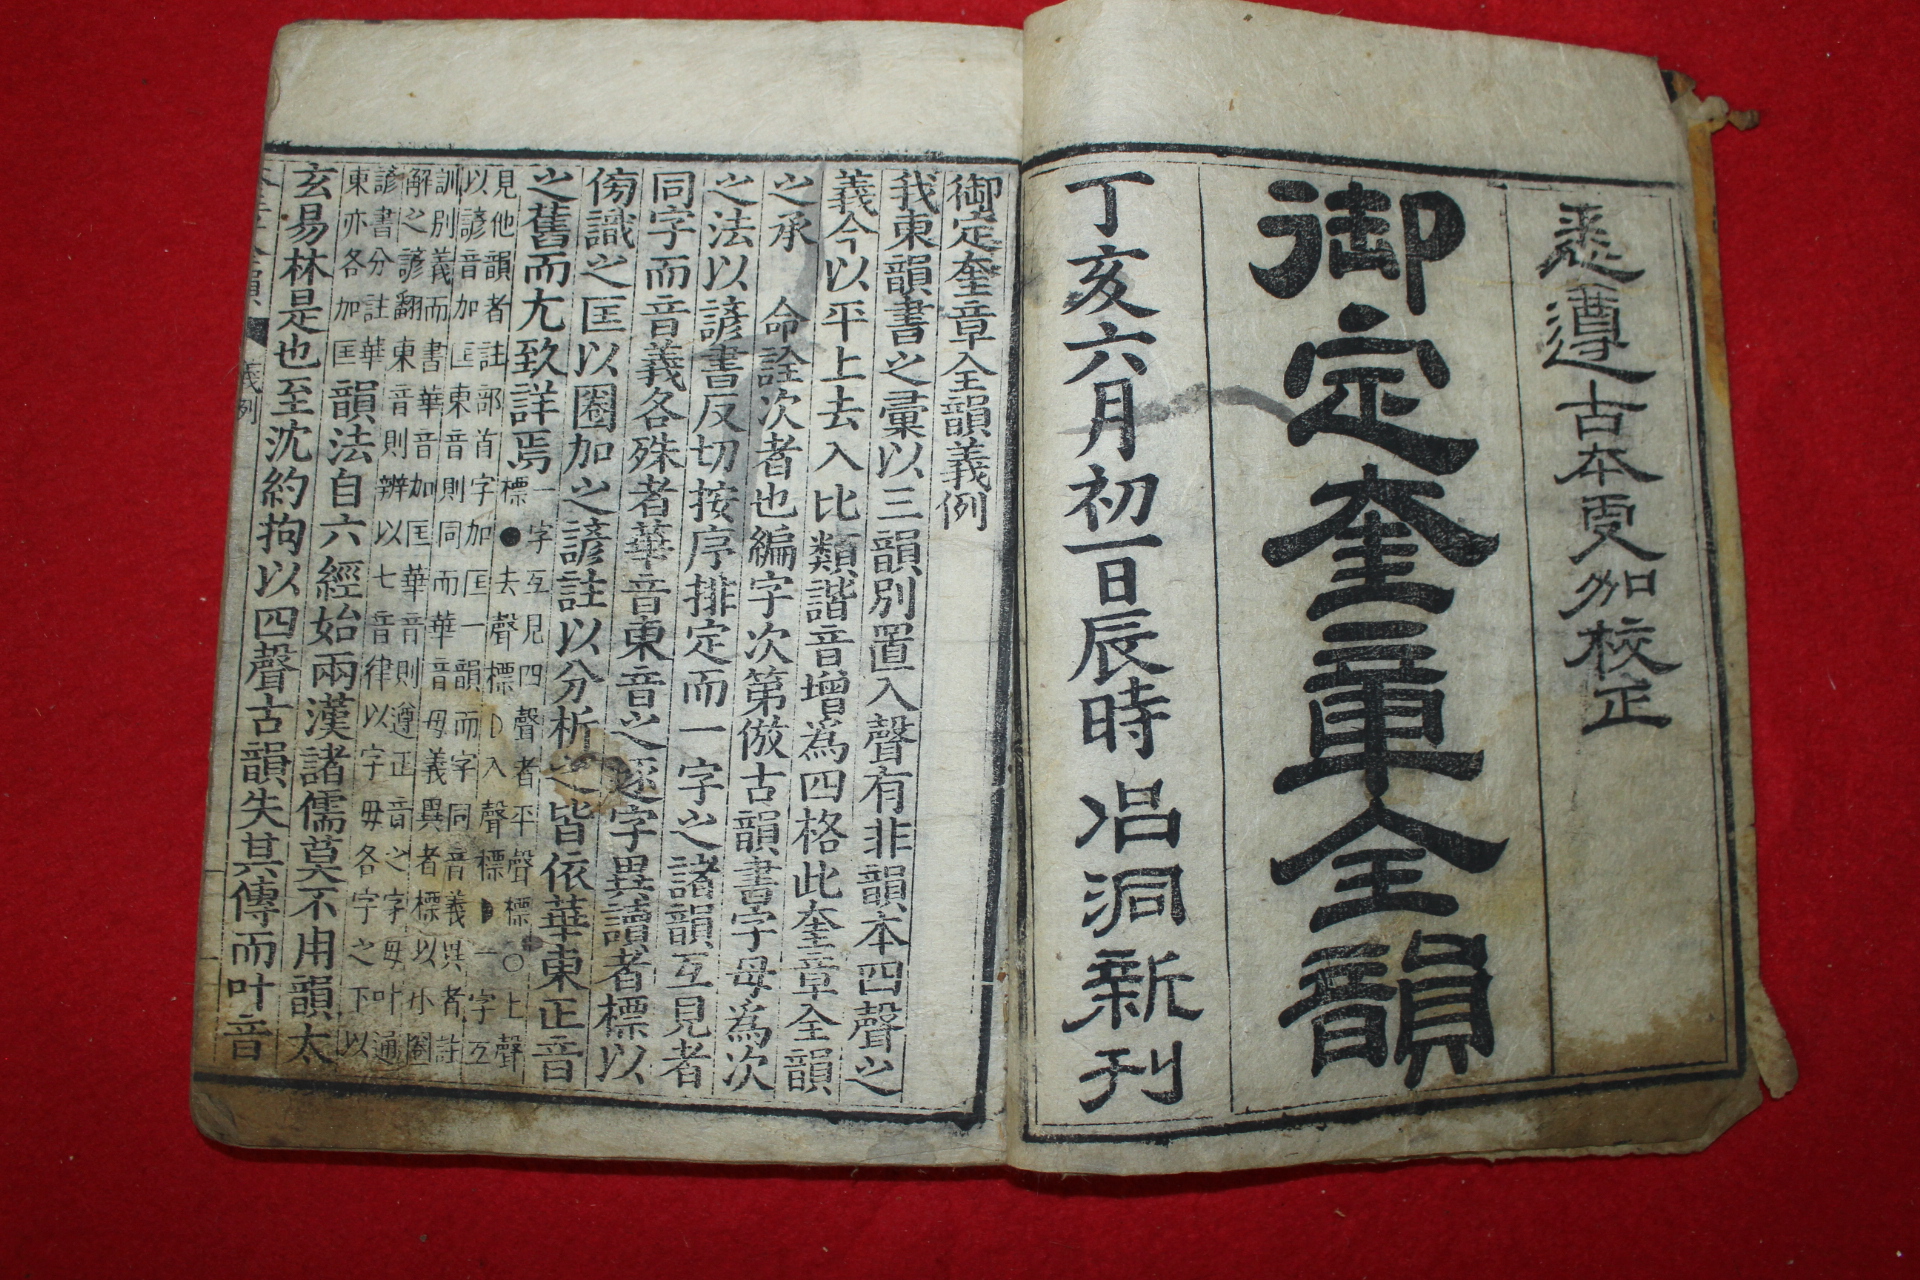 悉遵古本更加校正
御定奎章全韻
丁亥六月初一日辰時 冶洞新刊
御定奎章全韻義例
我東韻書之彙以三韻別置入聲有非韻本四聲之
義今以平上去入比類諧音增爲四格此奎章全韻
之承 命詮次者也編字次第倣古韻書字母爲次
之法以諺書反切按序排定而一字之諸韻互見者
同字而音義各殊者華音東音之逐字異讀者標以
傍識之匡以圈加之諺註以分析之皆依華東正音
之舊而尤致詳焉
一字互見四聲者平聲標○上聲
標●去聲標D入聲標◗一字互
見他韻者註部首字加匡一韻而字同音義異者註
以諺音加匡東音則同而華音母義異者標以小圈
訓別義而書華音加匡華音則遵正音之字母叶通
解之諺翻東音則辨以七音律以字母各字之下以
諺書分註華
東亦各加匡
韻法自六經始兩漢諸儒莫不用韻太
玄易林是也至沈約拘以四聲古韻失其傳而叶音
義例